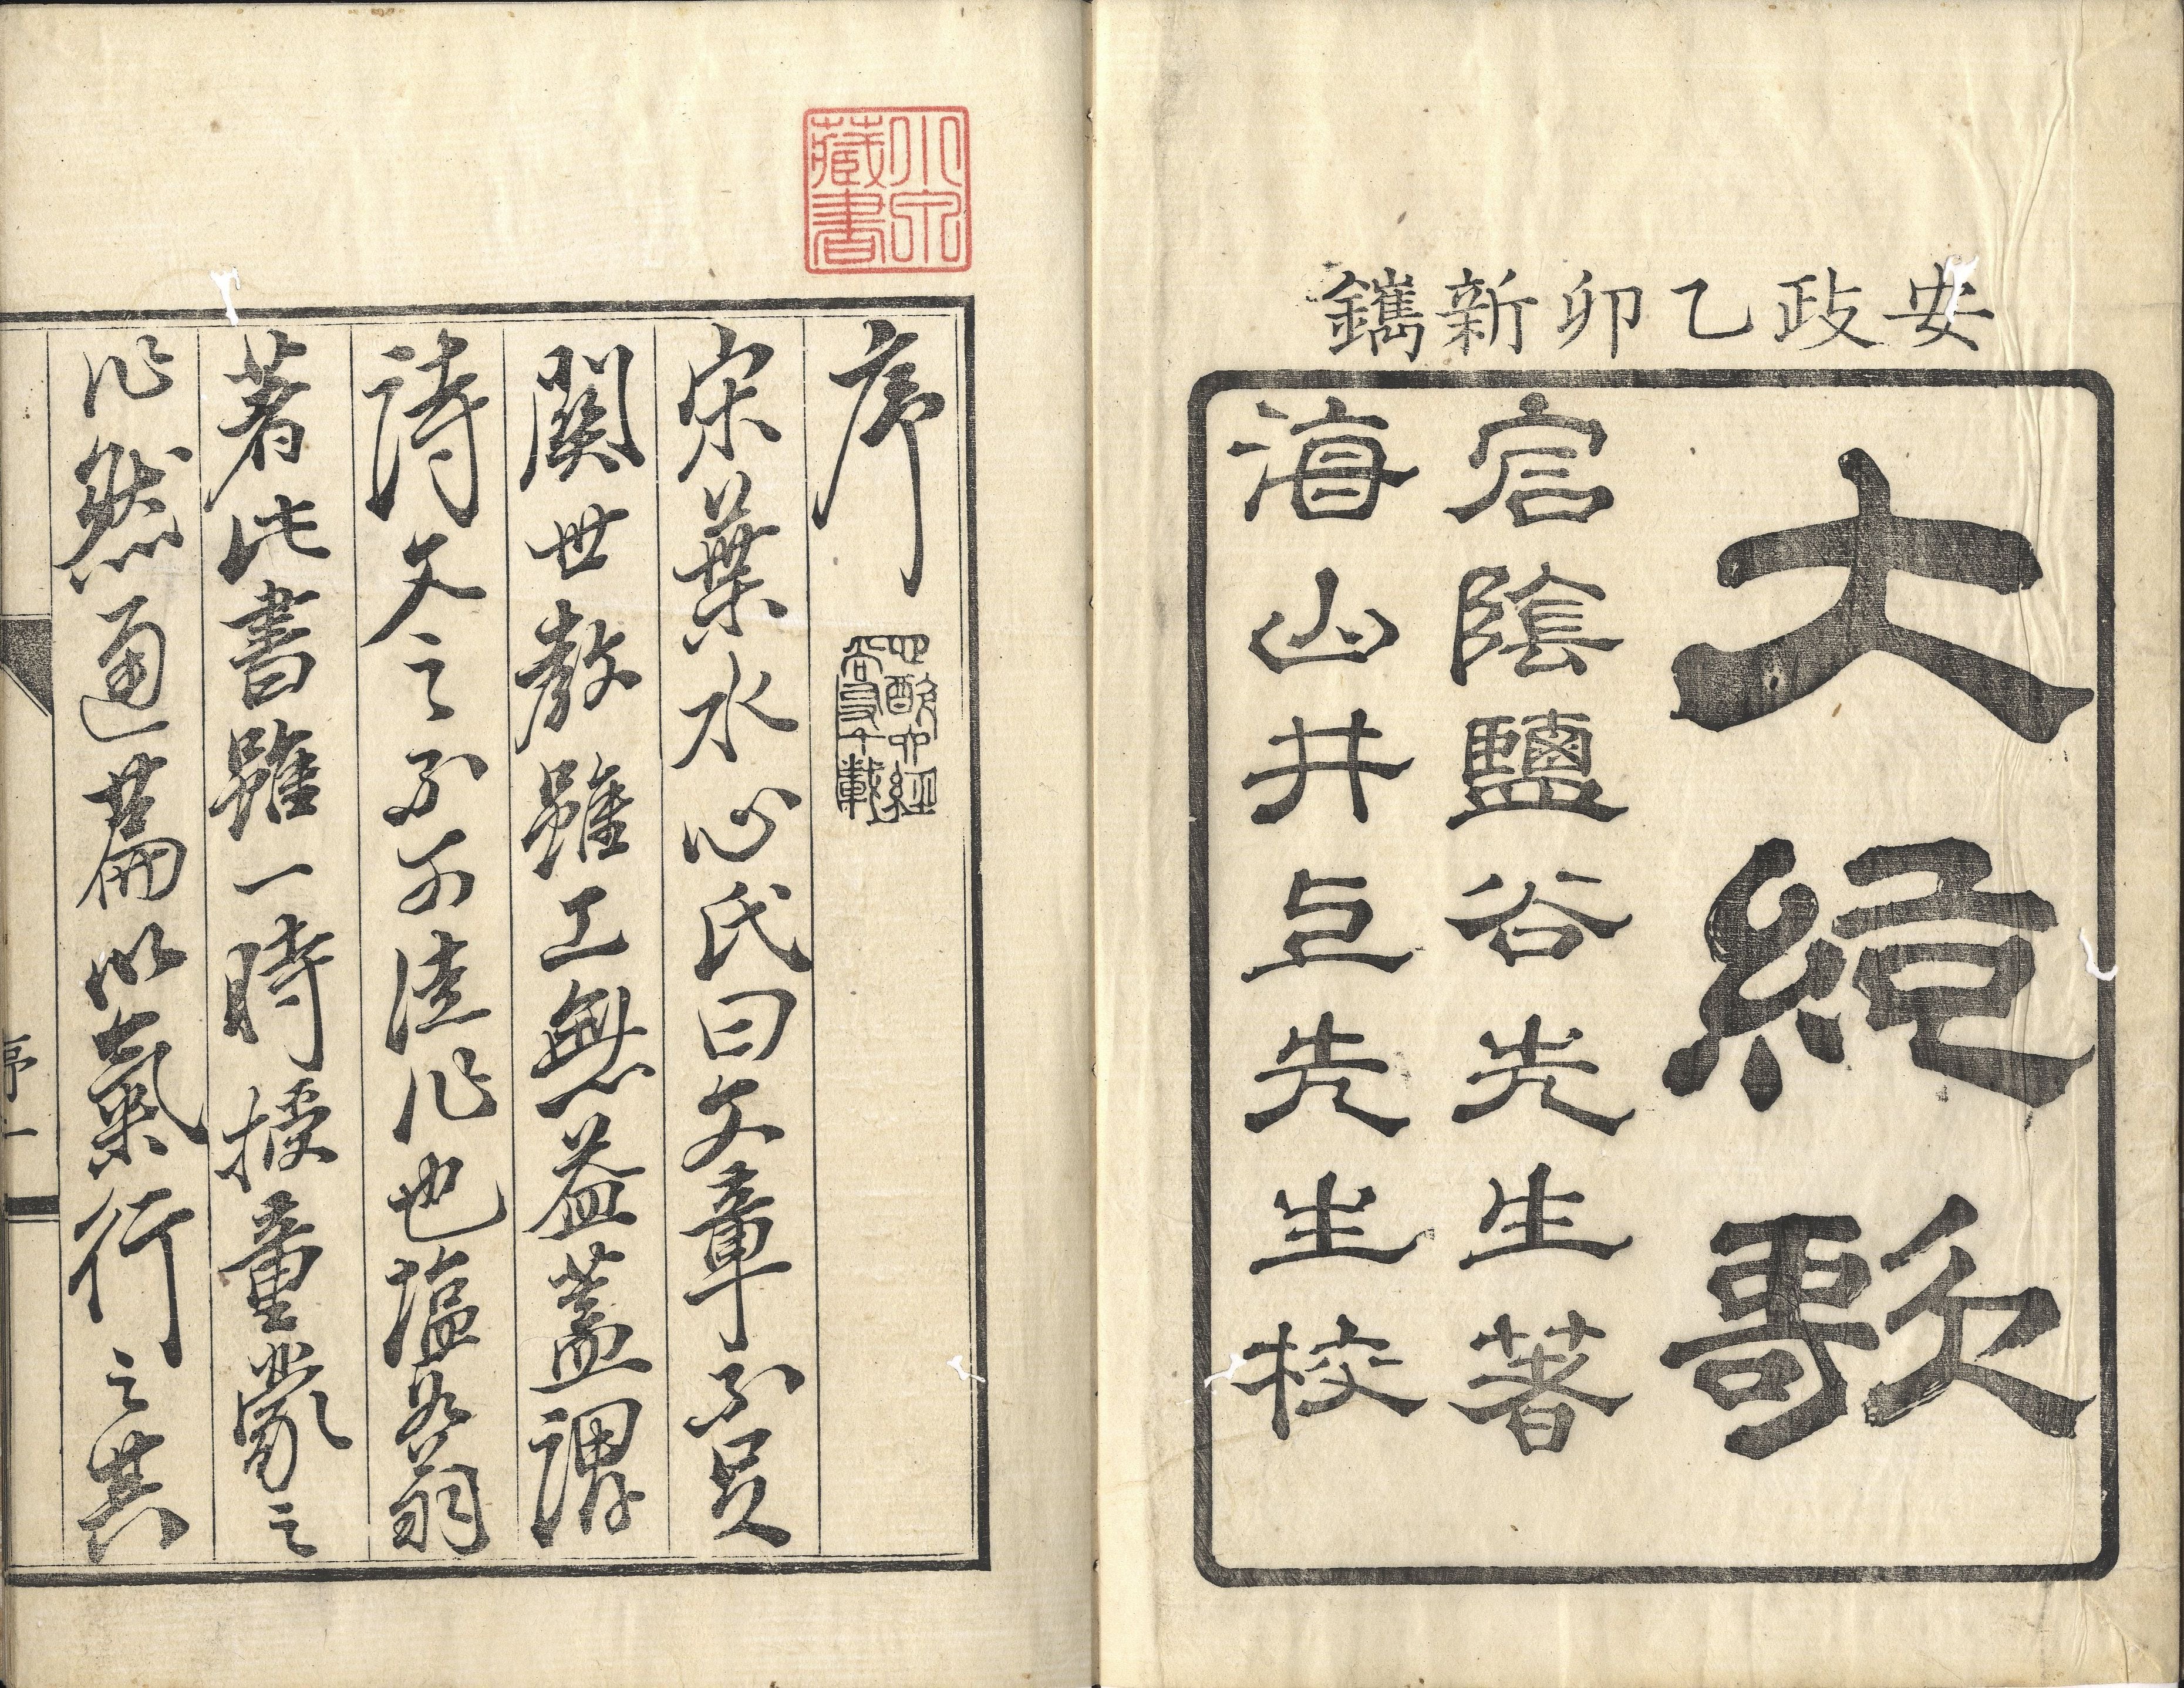 安政乙卯新鐫
大統歌
宕陰鹽谷先生著
海山井上先生校
藏書
序
宋葉水心氏曰文章不足
關世教雖工無益蓋謂
詩文之不可徒作也塩谷翁
著此書雖一時授童蒙之
作然通篇以氣行之其
序一